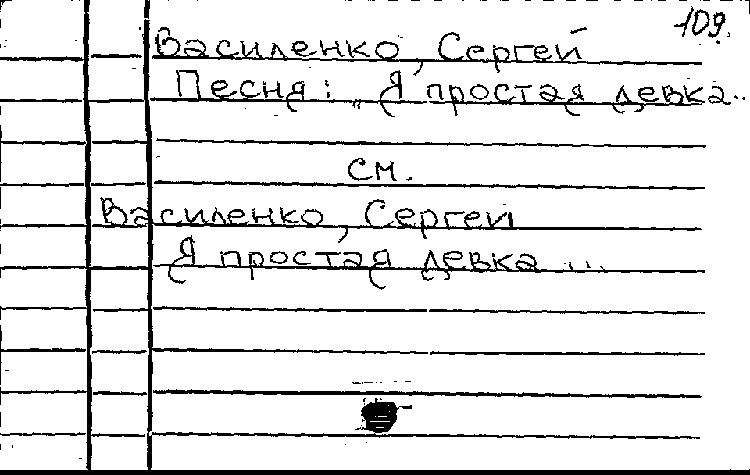 109.
Василенко, Сергей
Песня: „Я простая девка..
см.
Василенко, Сергей
Я простая девка ...